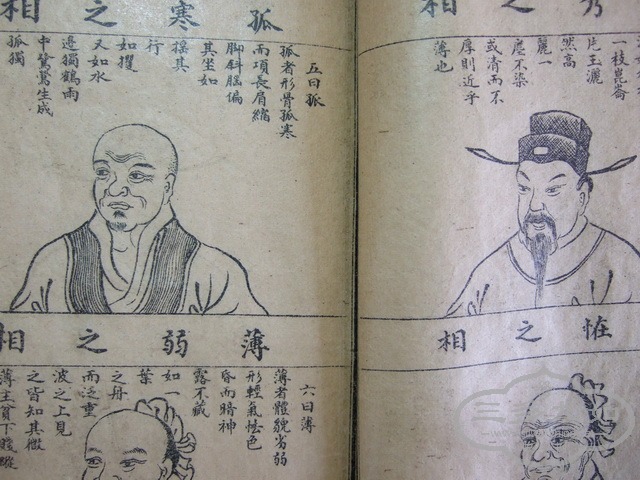 秀之相
一枝崑崙
片玉灑
然高
麗一
塵不染
或清而不
厚則近乎
薄也
恠之相
孤寒之相
五曰孤
孤者形骨孤寒
而項長肩縮
脚斜腦偏
其坐如
搖其
行
如攫
又如水
邊獨鶴雨
中鷺鷥生成
孤獨
薄弱之相
六曰薄
薄者體貌劣弱
形輕氣怯色
昏而暗神
露不藏
如一
葉
之舟
而泛重
波之上見
之皆知其微
薄主貧下賤縱